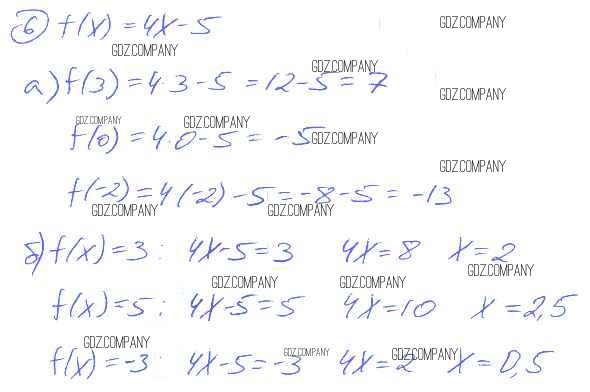 6) f(x) = 4x - 5
GDZ.COMPANY
GDZ.COMPANY
GDZ.COMPANY
а) f(3) = 4·3 - 5 = 12 - 5 = 7
GDZ.COMPANY
GDZ.COMPANY
GDZ.COMPANY
f(0) = 4·0 - 5 = -5
GDZ.COMPANY
GDZ.COMPANY
f(-2) = 4(-2) - 5 = -8 - 5 = -13
GDZ.COMPANY
GDZ.COMPANY
б) f(x) = 3: 4x - 5 = 3 4x = 8 x = 2
GDZ.COMPANY
GDZ.COMPANY
GDZ.COMPANY
f(x) = 5: 4x - 5 = 5 4x = 10 x = 2,5
GDZ.COMPANY
GDZ.COMPANY
GDZ.COMPANY
f(x) = -3: 4x - 5 = -3 4x = 2 x = 0,5